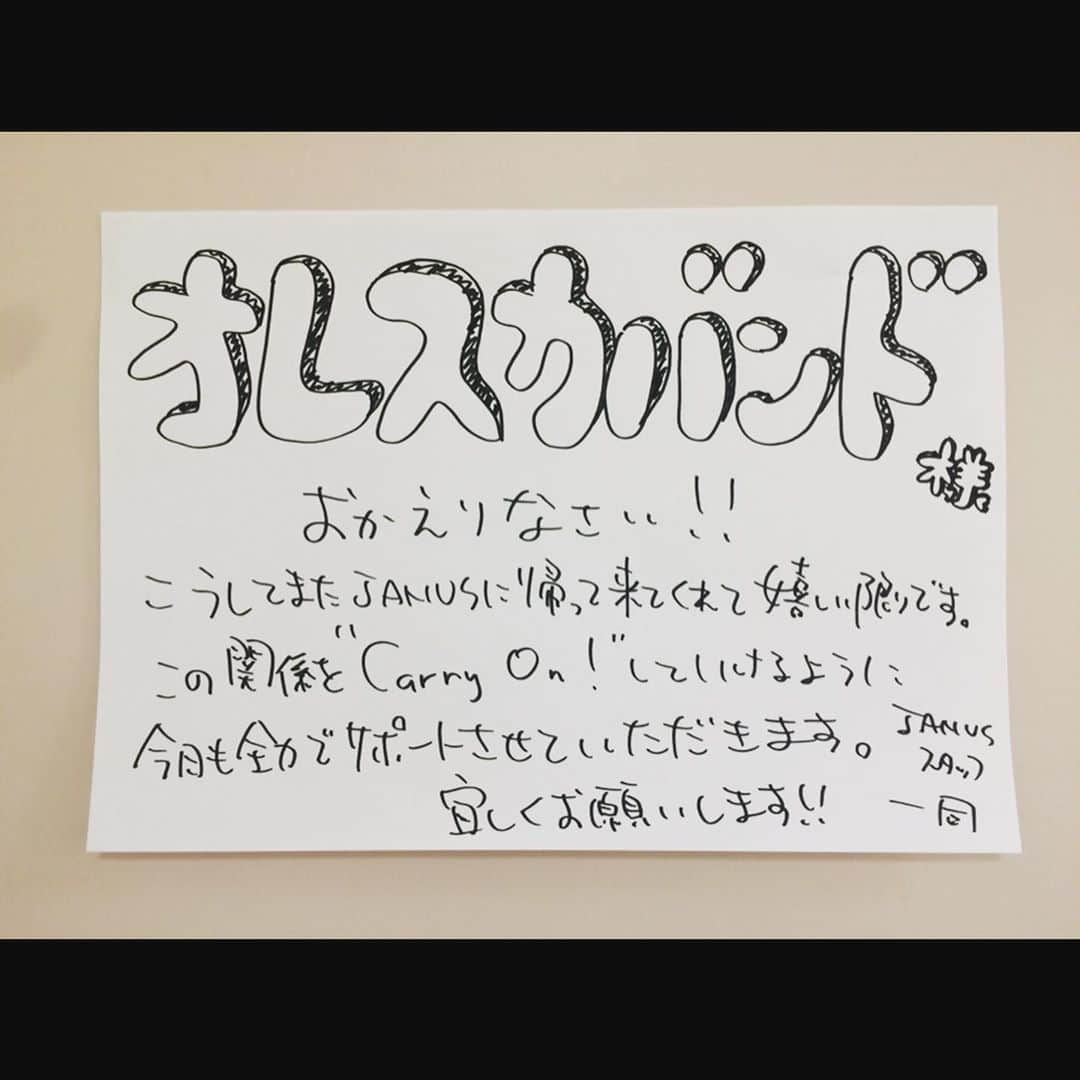 オレスカバンド
様
おかえりなさい!!
こうしてまたJANUSに帰って来てくれて嬉しい限りです。
この関係を"Carry On!"していけるように
今月も全力でサポートさせていただきます。
宜しくお願いします!!
JANUS
スタッフ
一同